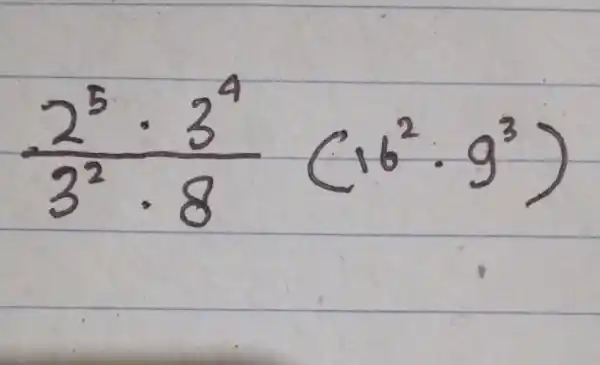 2⁵ · 3⁴
3² · 8
(16² · 9³)